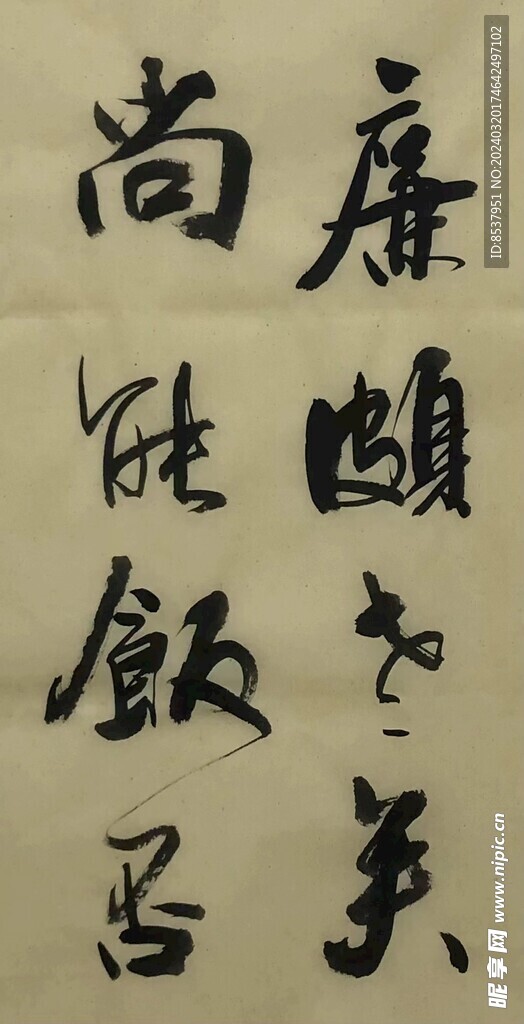 廉頗老矣
尚能飯否
ID:8537951 NO:20240320174642497102
昵享网 www.nipic.cn